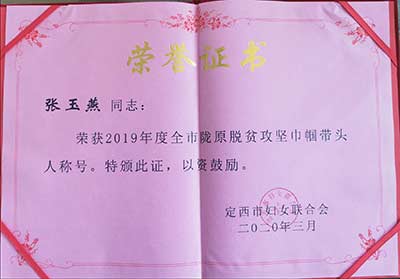 荣誉证书
张玉燕 同志：
荣获2019年度全市陇原脱贫攻坚巾帼带头
人称号。特颁此证，以资鼓励。
定西市妇女联合会
二〇二〇年三月